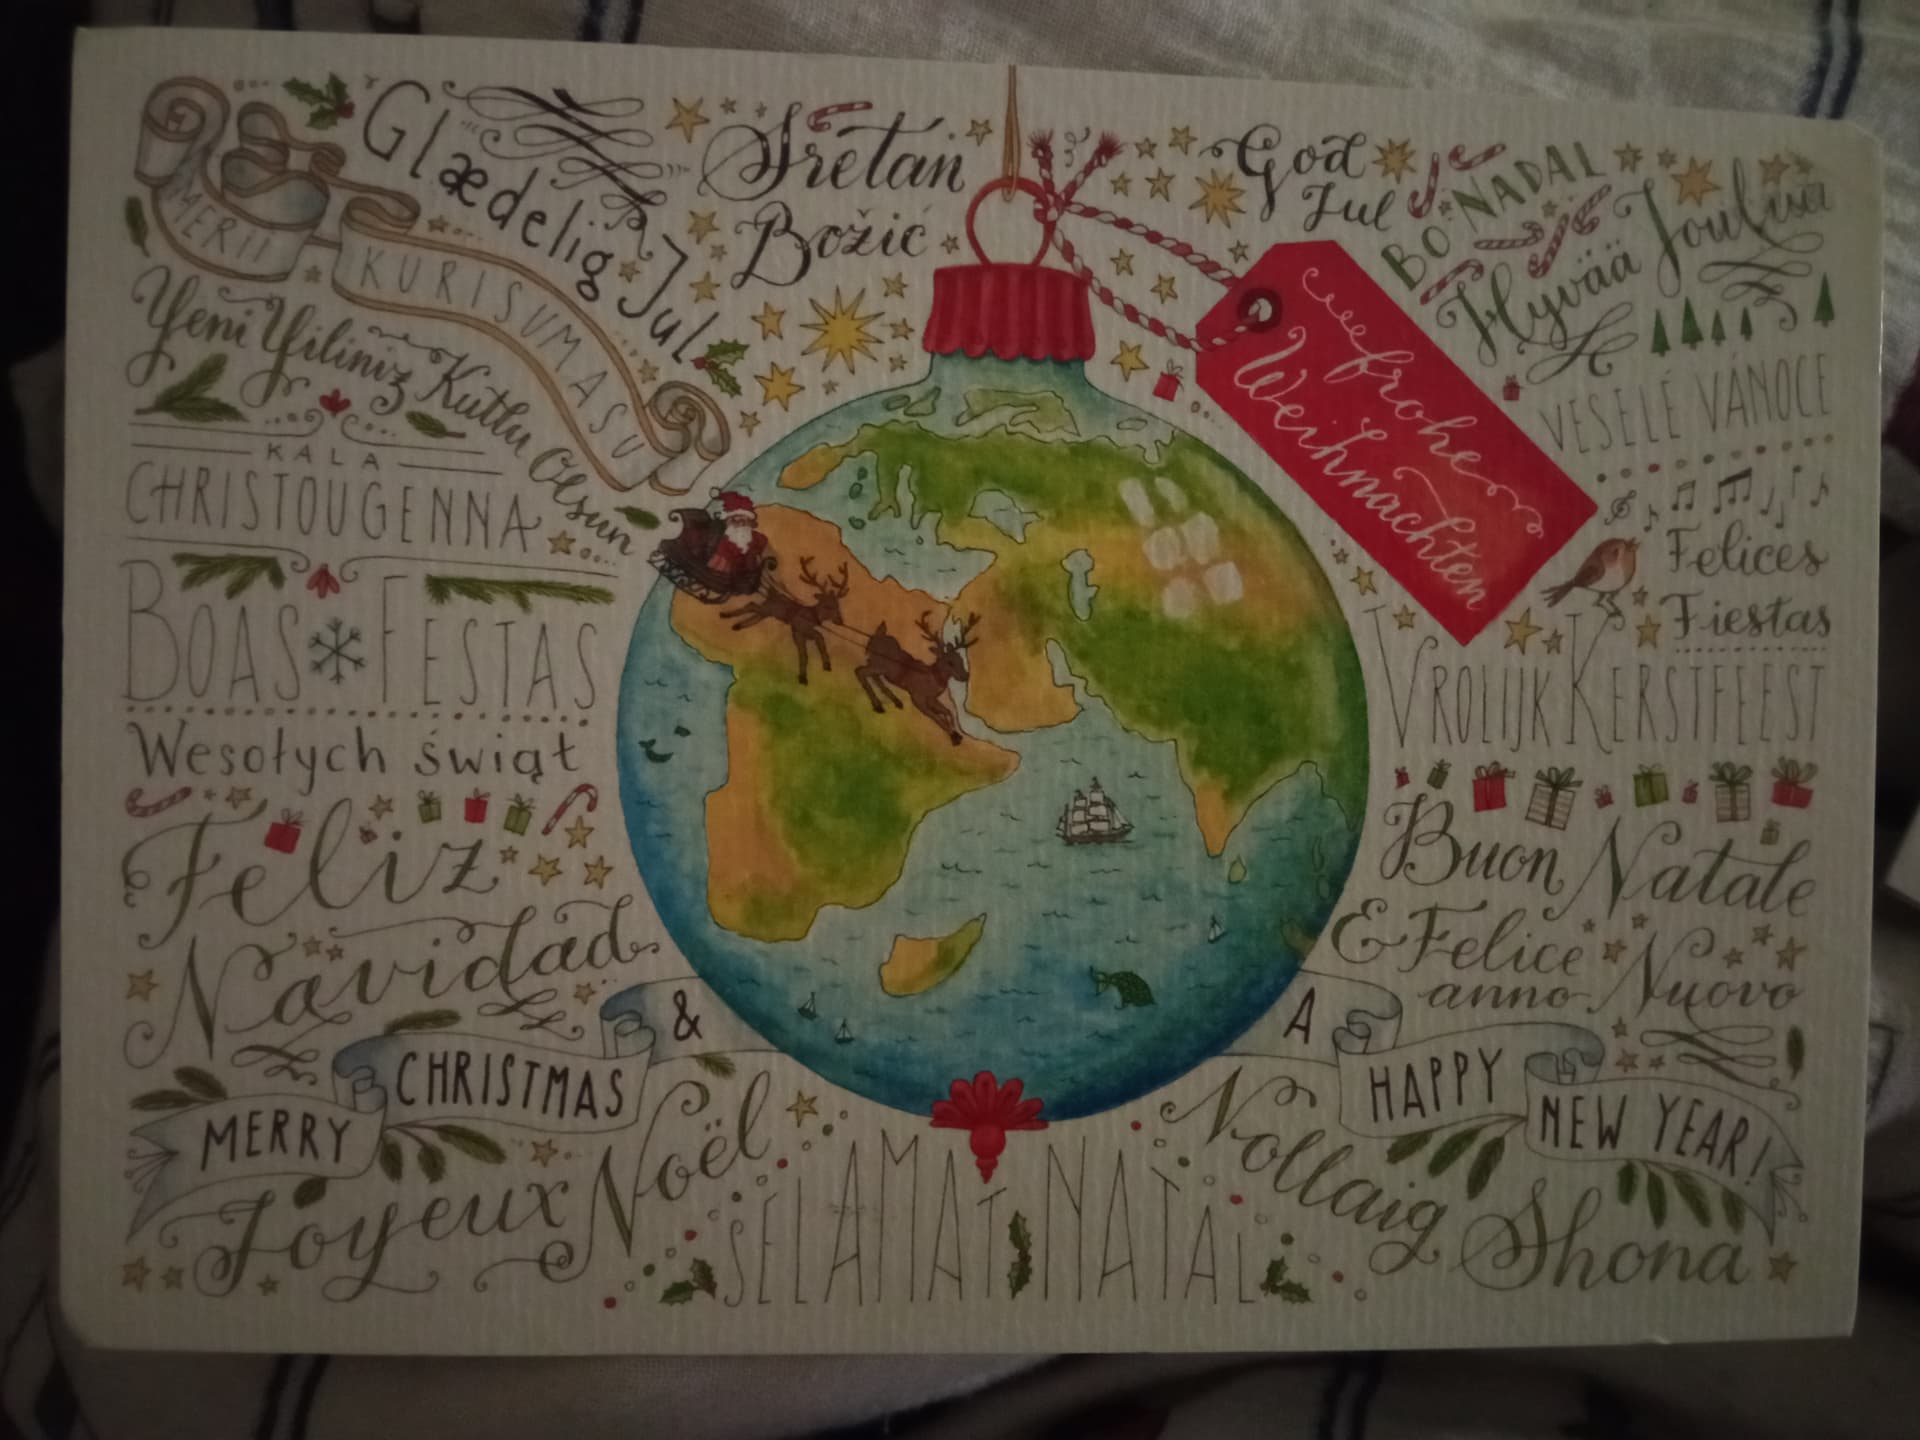 MERII
KURISUMASU
Glædelig Jul
Sretan
Božić
God
Jul
BO NADAL
Hyvää Joulua
Yeni Yiliniz Kutlu Olsun
frohe
Weihnachten
VESELÉ VÁNOCE
KALA
CHRISTOUGENNA
Felices
Fiestas
BOAS FESTAS
VROLIJK KERSTFEEST
Wesołych świąt
Feliz
Navidad
Buon Natale
& Felice
anno Nuovo
MERRY CHRISTMAS & A HAPPY NEW YEAR!
Joyeux Noël
SELAMAT NATAL
Nollaig
Shona